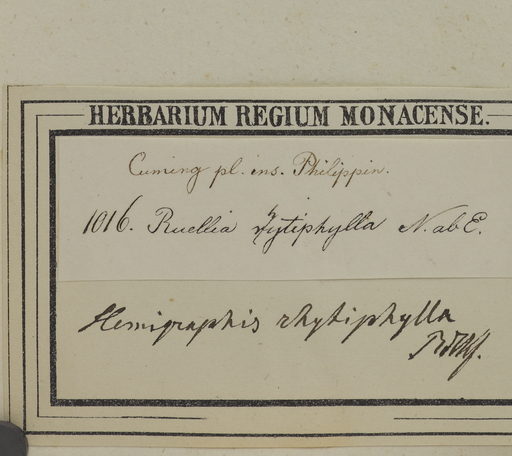 HERBARIUM REGIUM MONACENSE.
Cuming pl. ins. Philippin.
1016. Ruellia rhytiphylla N. ab E.
Hemigraphis rhytiphylla